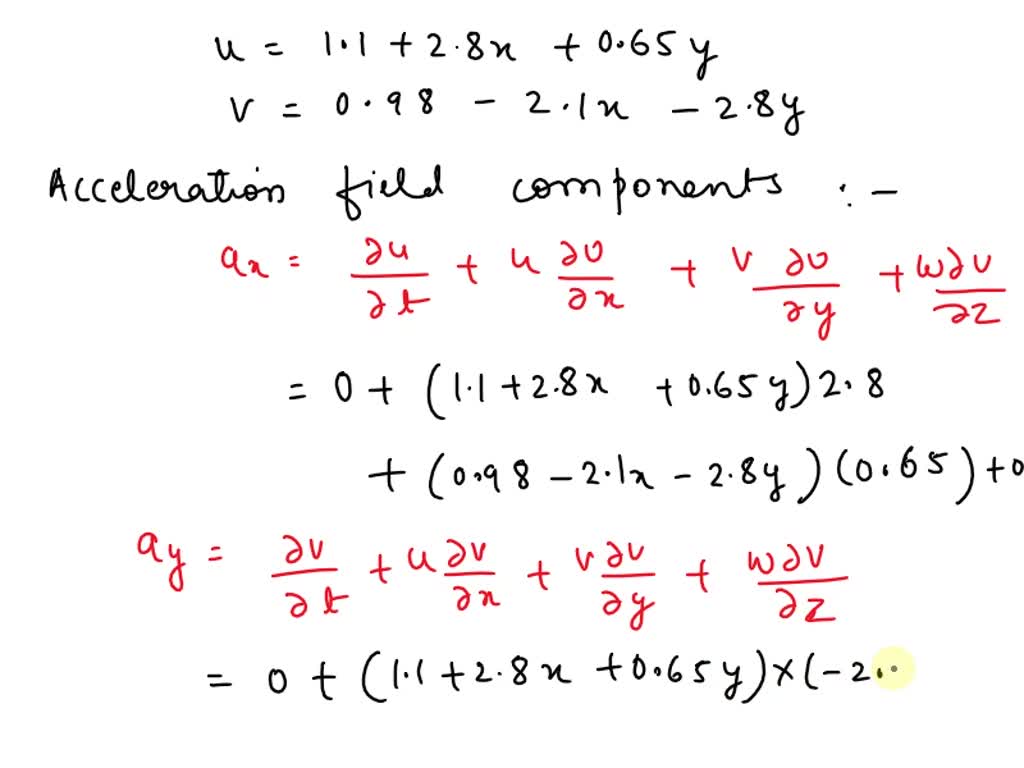 u = 1.1 + 2.8x + 0.65y
v = 0.98 - 2.1x - 2.8y
Acceleration field components :-
ax = ∂u/∂t + u ∂v/∂x + v ∂v/∂y + w∂v/∂z
= 0 + (1.1 + 2.8x + 0.65y)2.8
+ (0.98 - 2.1x - 2.8y)(0.65) + 0
ay = ∂v/∂t + u ∂v/∂x + v ∂v/∂y + w∂v/∂z
= 0 + (1.1 + 2.8x + 0.65y) × (-2.